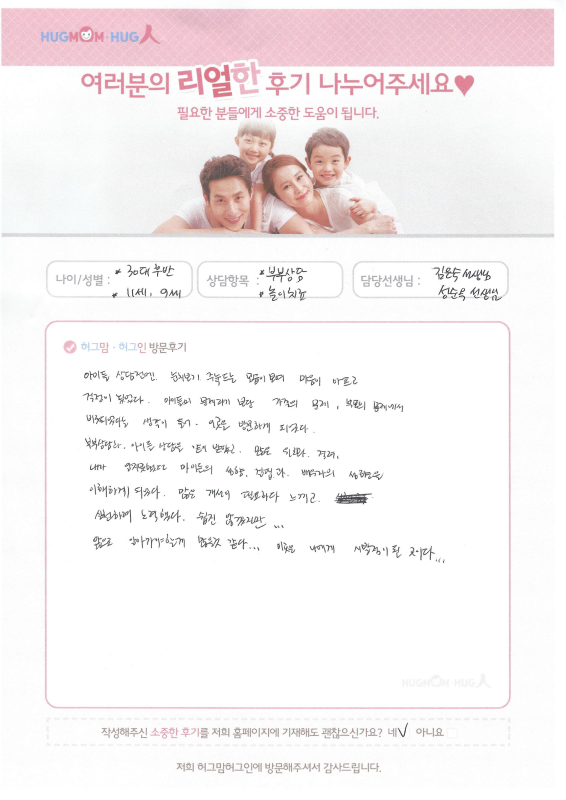 HUGMOM·HUG人
여러분의 리얼한 후기 나누어주세요♥
필요한 분들에게 소중한 도움이 됩니다.
나이/성별 : * 30대 후반
* 11세, 9세
상담항목 : * 부부상담
* 놀이치료
담당선생님 : 김은숙 선생님
성순옥 선생님
허그맘·허그인 방문후기
아이들 상담전엔. 눈치보기. 주눅드는 모습이 보여 마음이 아프고
걱정이 되었다. 아이들의 문제라기 보단 가족의 문제, 부모의 문제에서
비롯되었다는 생각이 들기. 이곳을 방문하게 되었다.
부부상담과. 아이들 상담을 받고. 많은 위로와. 격려,
내가 아이들의 성향, 단점과. 배우자의 성향을
이해하게 되었다. 많은 개선이 필요하다 느끼고.
실천하며 노력했다. 쉽진 않겠지만...
앞으로 알아가야할게 많을것 같다... 이곳은 나에게 시작점이 된 곳이다...
HUGMOM HUG人
작성해주신 소중한 후기를 저희 홈페이지에 기재해도 괜찮으신가요? 네 ✓ 아니요
저희 허그맘허그인에 방문해주셔서 감사드립니다.